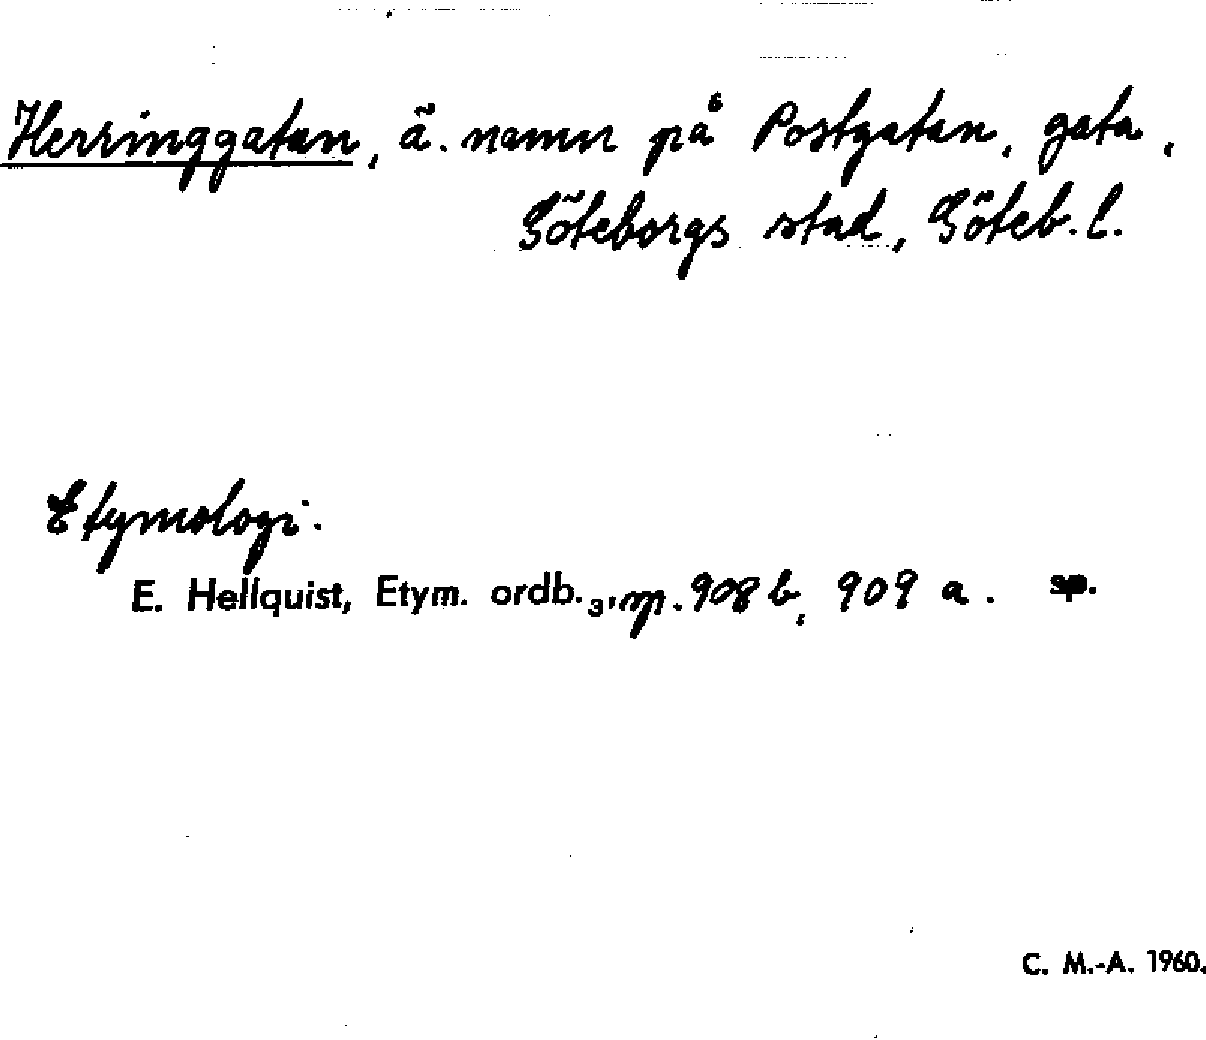 Herringgatan, ä. namn på Postgatan, gata,
Göteborgs stad, Göteb. l.
Etymologi.
E. Hellquist, Etym. ordb.3, sp. 908 b, 909 a. sp.
C. M.-A. 1960.